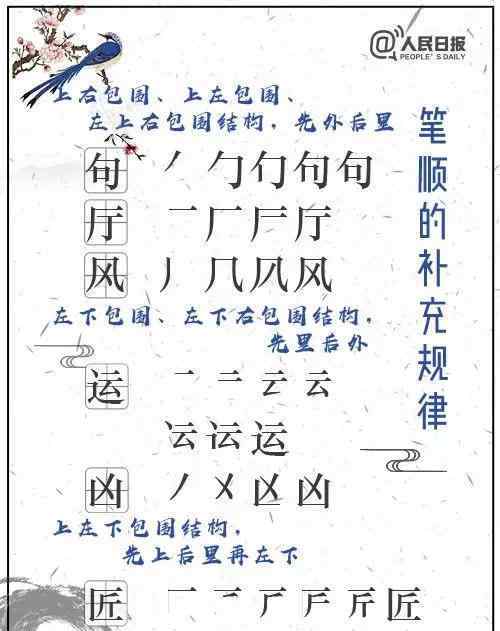 @人民日报
PEOPLE'S DAILY
笔顺的补充规律
上右包围、上左包围、
左上右包围结构，先外后里
句 丿 勹 勹 句 句
厅 一 厂 厅
风 丿 几 风
左下包围、左下右包围结构，
先里后外
运 一 二 云 云
运
凶 丿 㐅 凶 凶
上左下包围结构，
先上后里再左下
匠 一 匠